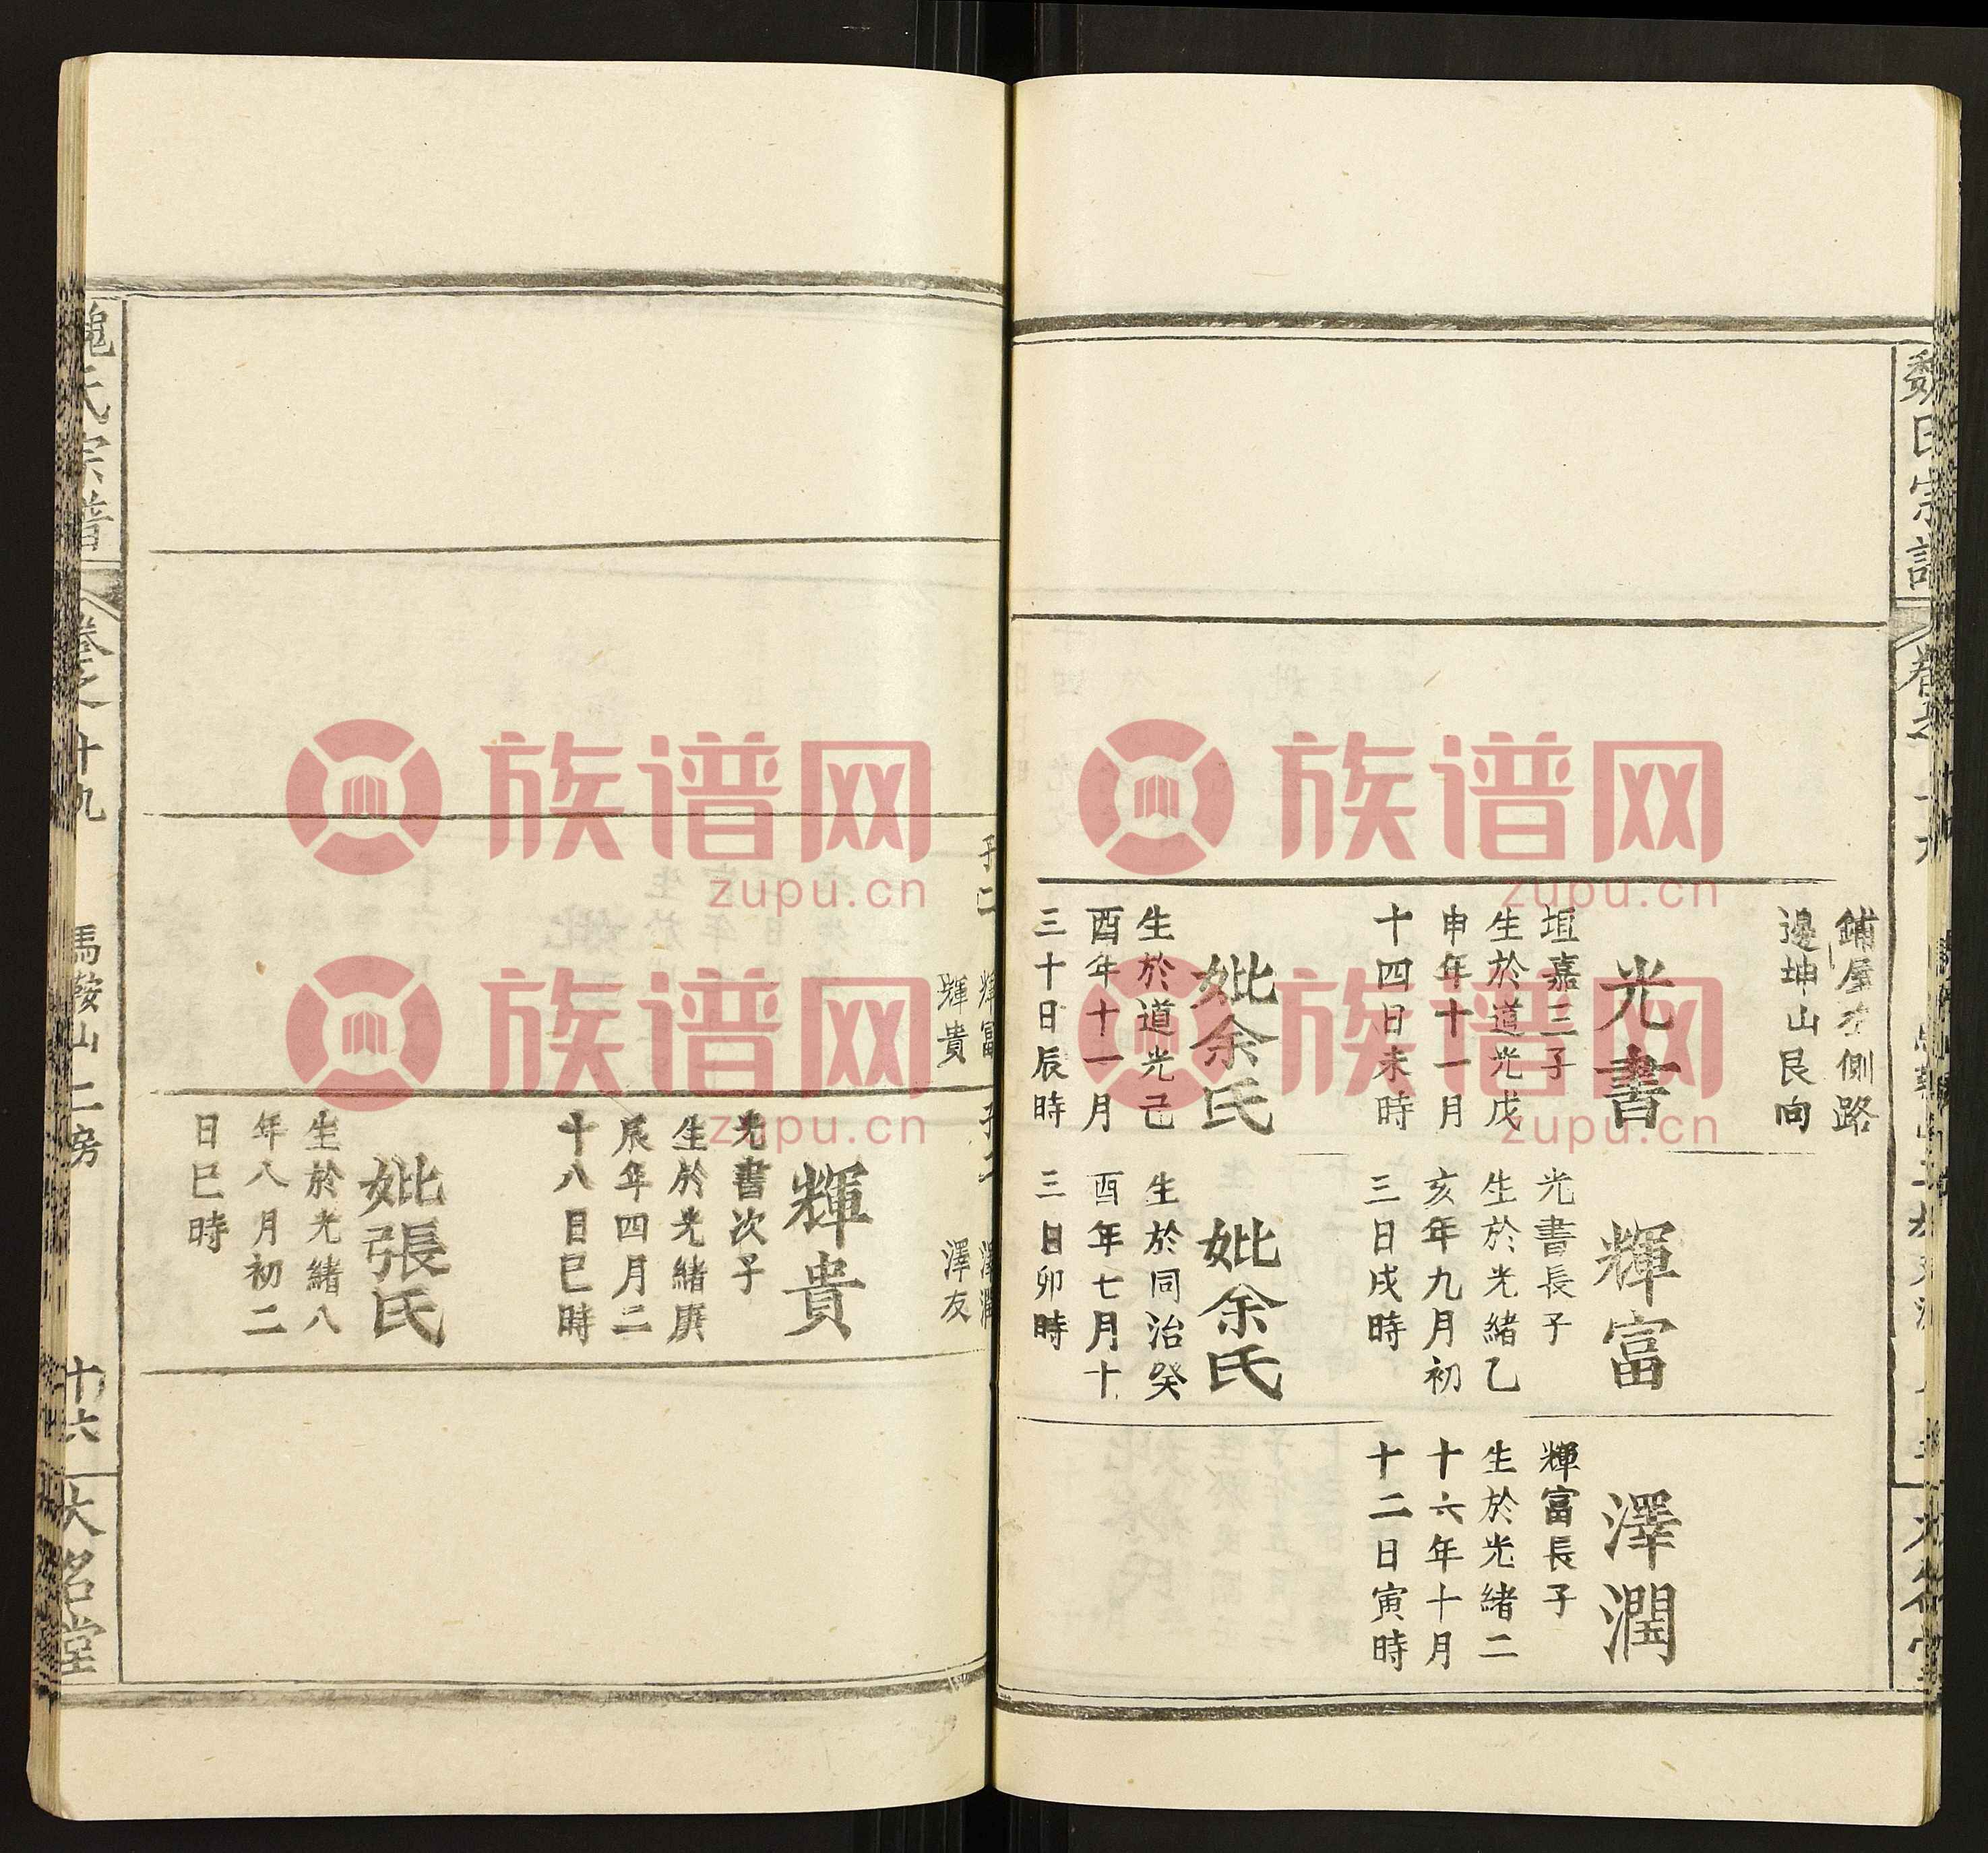 鋪屋左側路
邊坤山艮向
光書
垣嘉三子
生於道光戊
申年十一月
十四日未時
妣余氏
生於道光己
酉年十一月
三十日辰時
輝富
光書長子
生於光緒乙
亥年九月初
三日戌時
妣余氏
生於同治癸
酉年七月十
三日卯時
澤潤
輝富長子
生於光緒二
十六年十月
十二日寅時
子二
輝富
輝貴
子二
澤潤
澤友
輝貴
光書次子
生於光緒庚
辰年四月二
十八日巳時
妣張氏
生於光緒八
年八月初二
日巳時
魏氏宗譜
卷之十九
馬鞍山二房
十六
大名堂
族谱网
zupu.cn
族谱网
zupu.cn
族谱网
zupu.cn
族谱网
zupu.cn